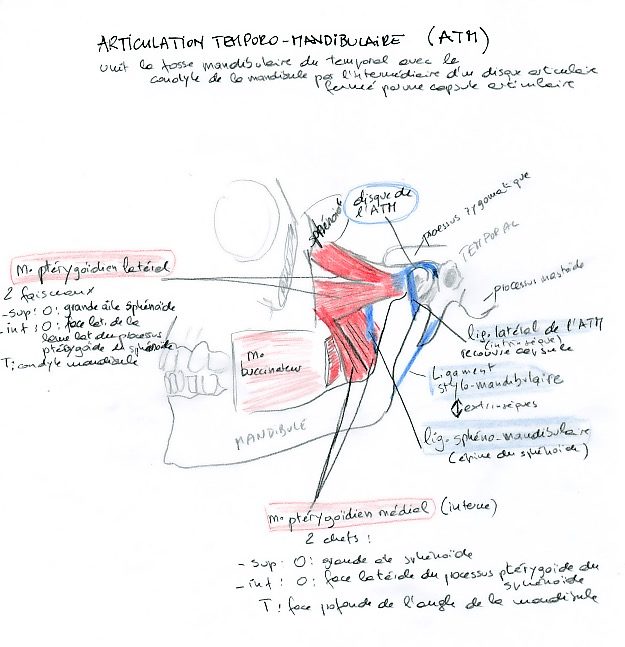 ARTICULATION TEMPORO-MANDIBULAIRE (ATM)
unit la fosse mandibulaire du temporal avec le
condyle de la mandibule par l'intermédiaire d'un disque articulaire
fermé par une capsule articulaire
sphénoïde
disque de
l'ATM
processus zygomatique
TEMPORAL
processus mastoïde
M. ptérygoïdien latéral
2 faisceaux
- sup : O : grande aile sphénoïde
- inf : O : face lat. de la
lame lat du processus
ptérygoïde du sphénoïde
T : condyle mandibule
M.
buccinateur
MANDIBULE
lig. latéral de l'ATM
(intrinsèque)
recouvre capsule
Ligament
stylo-mandibulaire
extrinsèques
lig. sphéno-mandibulaire
(épine du sphénoïde)
M. ptérygoïdien médial (interne)
2 chefs :
- sup : O : grande aile sphénoïde
- inf : O : face latérale du processus ptérygoïde du
sphénoïde
T : face profonde de l'angle de la mandibule